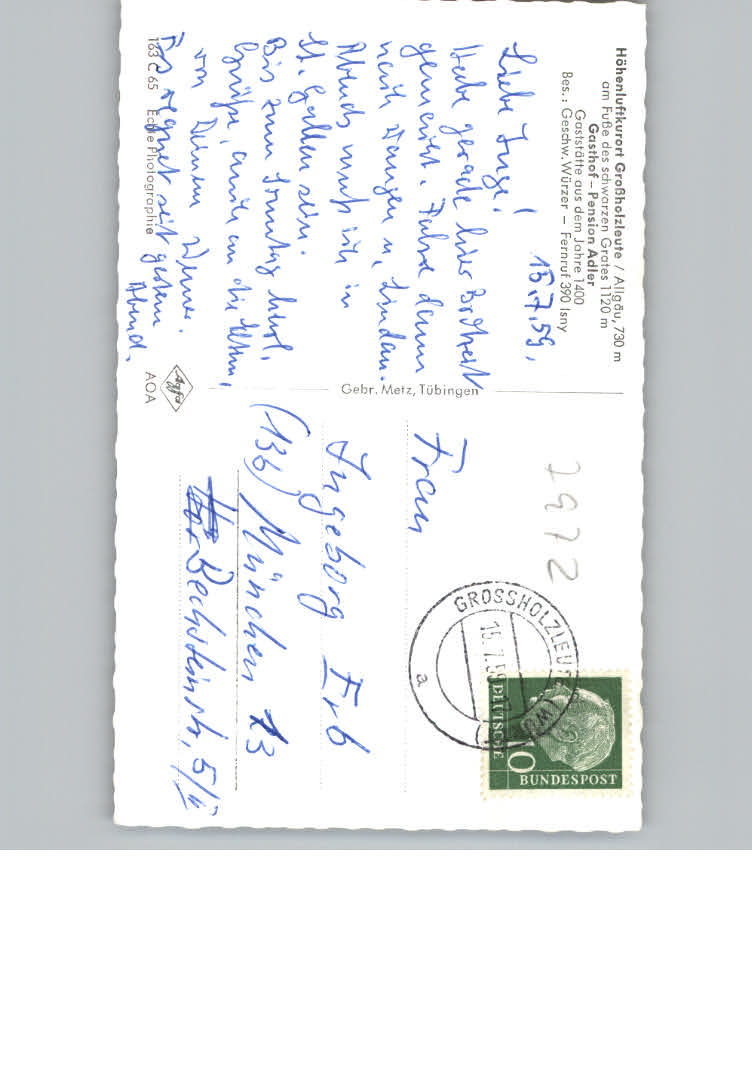 Höhenluftkurort Großholzleute / Allgäu, 730 m
am Fuße des schwarzen Grates 1120 m
Gasthof – Pension Adler
Gaststätte aus dem Jahre 1400
Bes.: Geschw. Würzer – Fernruf 390 Isny
15.7.59.
Liebe Inge!
Habe gerade hier Brotzeit
gemacht. Fahre dann
nach Wangen u. Lindau.
Abends muß ich in
St. Gallen sein.
Bis zum Sonntag herzl.
Grüße, auch an die
von Deinem Werner.
Es regnet seit gestern
Abend.
163 C 65 Echte Photographie
Agfa
AOA
Gebr. Metz, Tübingen
2972
GROSSHOLZLEUTE
15.7.59
a
DEUTSCHE
BUNDESPOST
Frau
Ingeborg Erb
(13b) München 13
Bechsteinstr. 5/II